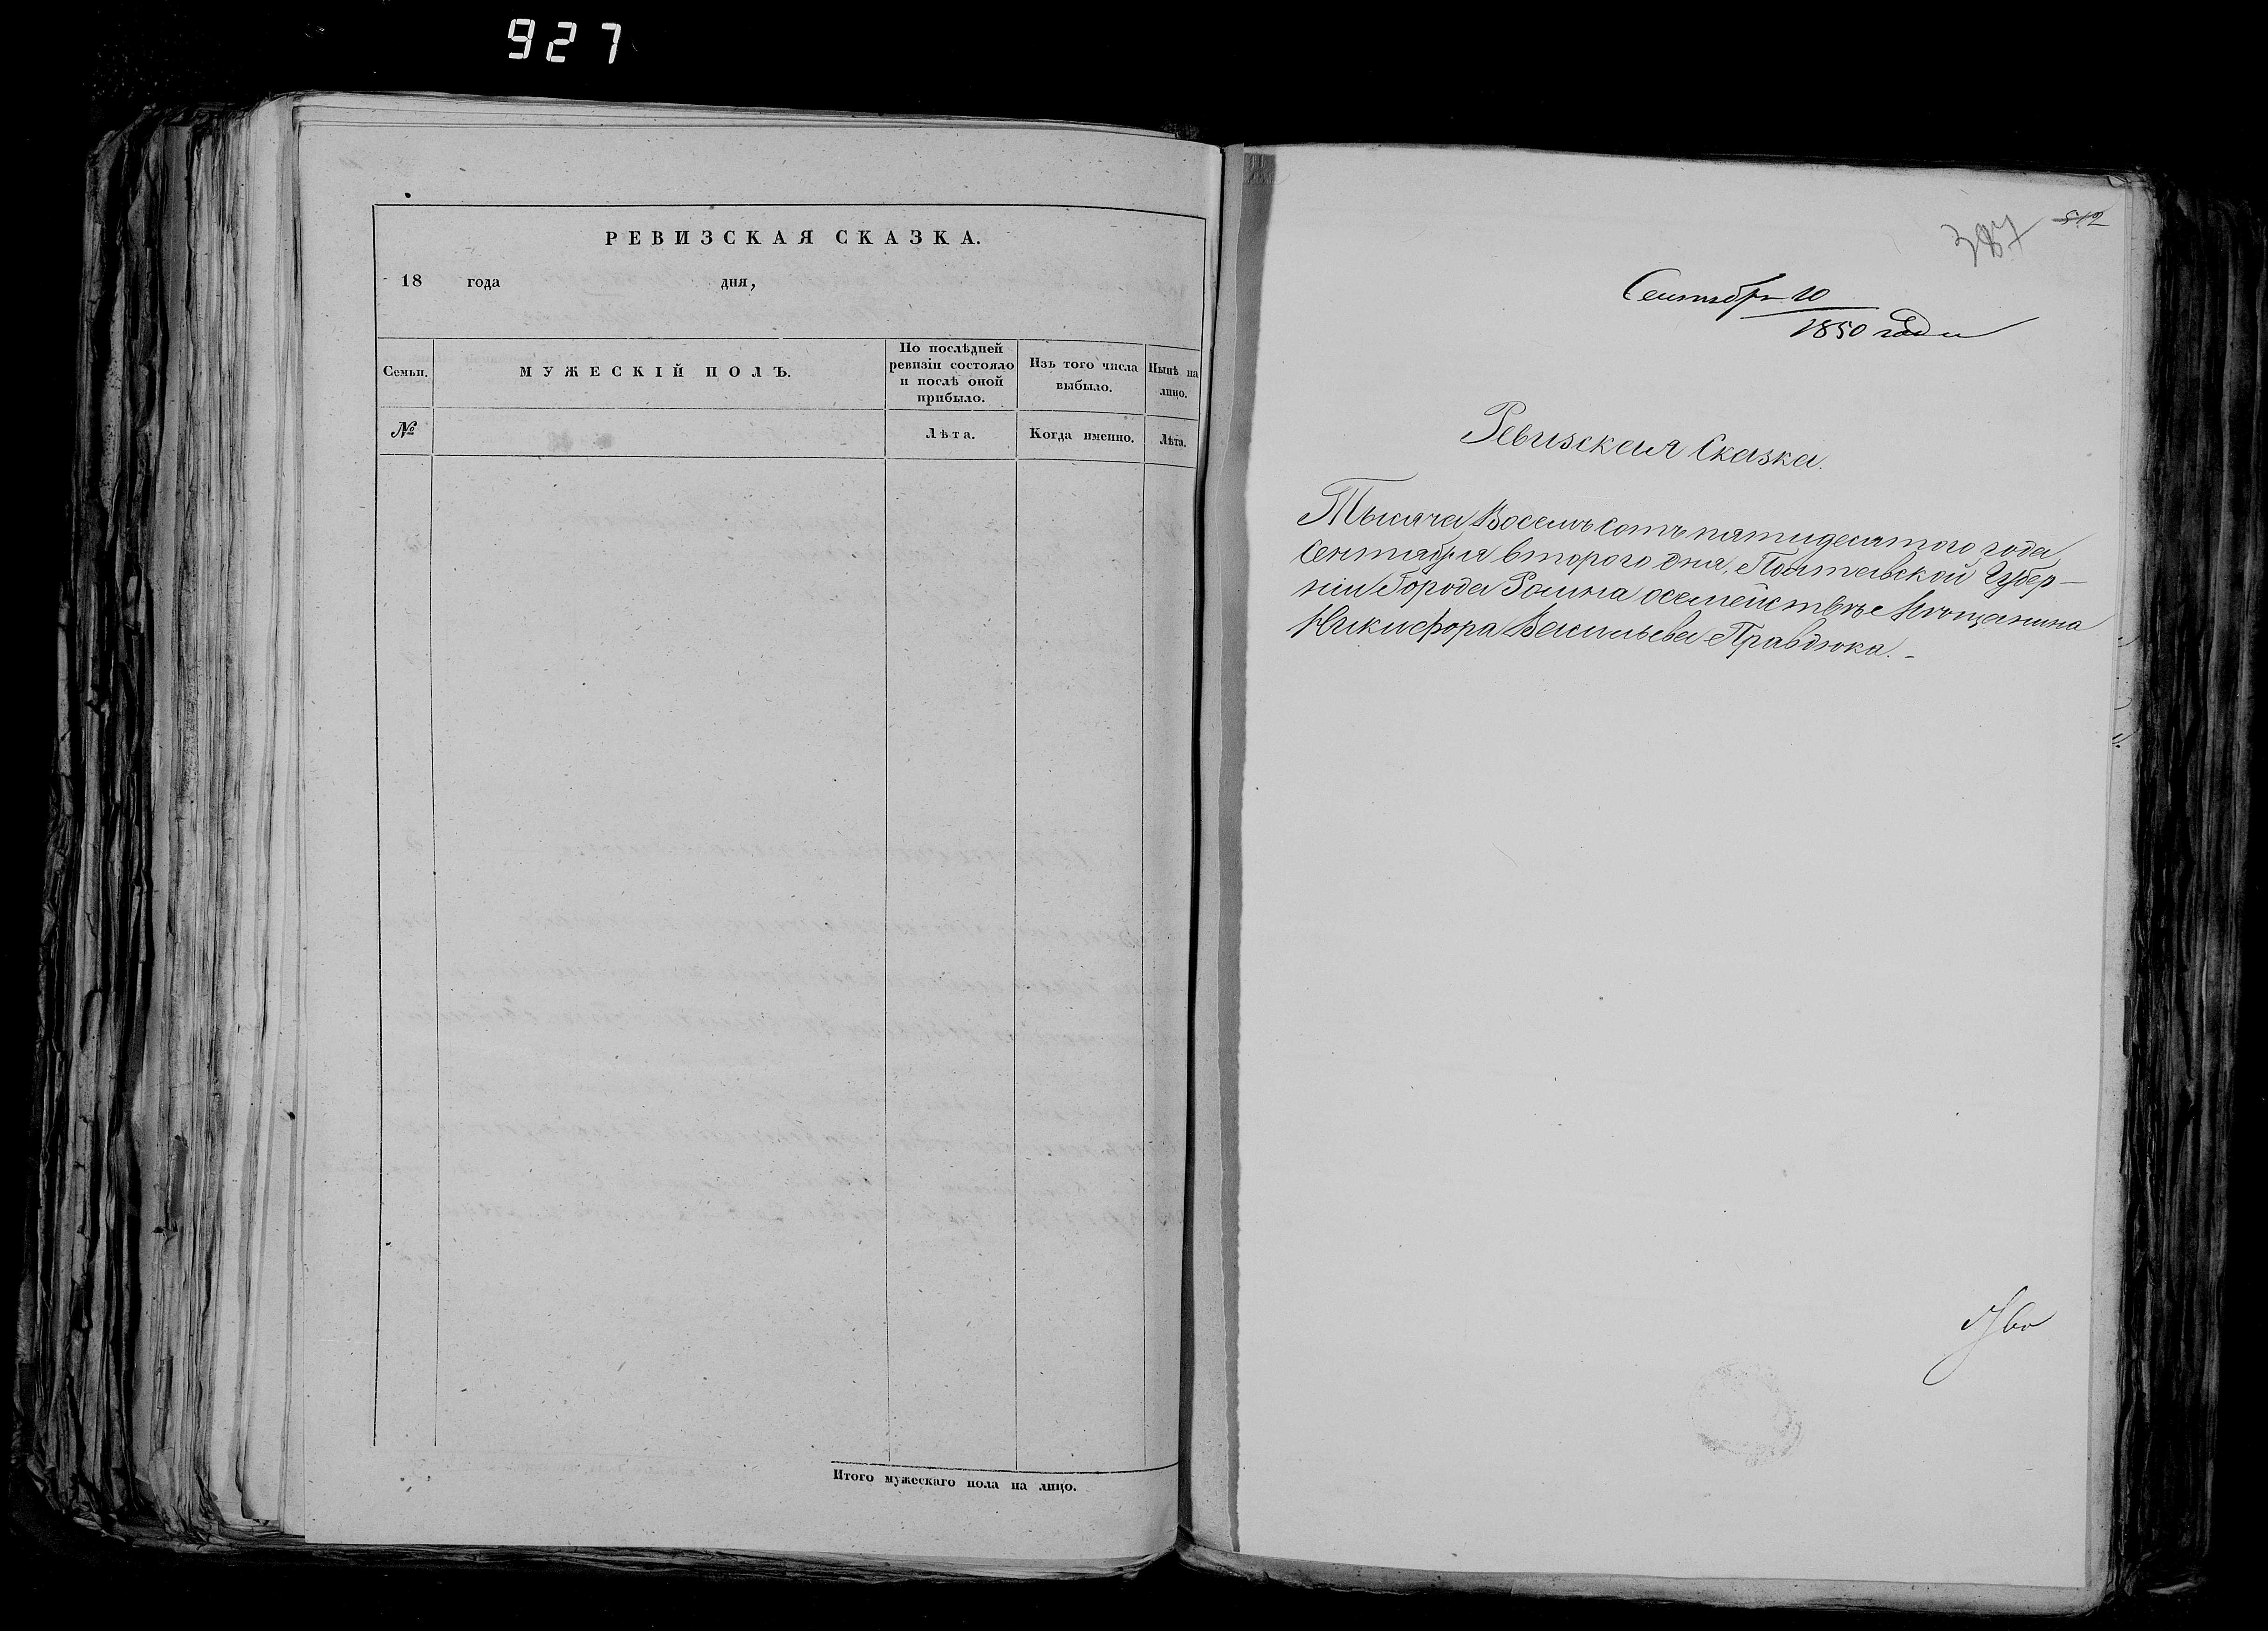 927
РЕВИЗСКАЯ СКАЗКА.
18 года дня,
Семьи.
МУЖЕСКІЙ ПОЛЪ.
По послѣдней
ревизіи состояло
и послѣ оной
прибыло.
Изъ того числа
выбыло.
Нынѣ на
лицо.
№
Лѣта.
Когда именно.
Лѣта.
Итого мужескаго пола на лицо.
387
512
Сентябр 10
1850 года
Ревизская Сказка.
Тысяча Восемъ сотъ пятидесятого года
Сентября второго дня, Полтавской Губер-
ніи Города Ромна осемействѣ Мѣщанина
Никифора Васильева Правдюка. -